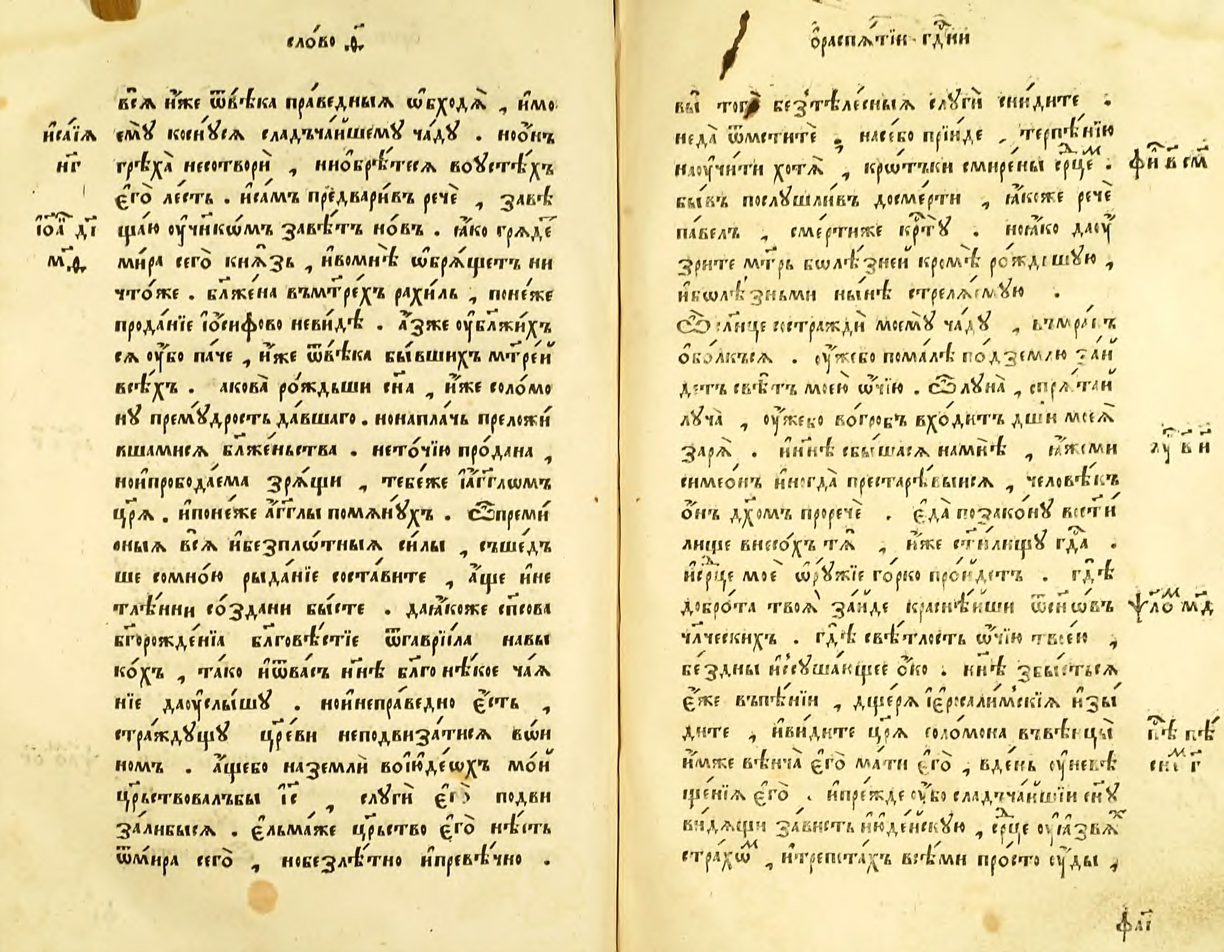 сло́во ѳ҃і
всѧ̀ и҆́же ѿвѣ́ка пра́ведныѧ ѡ҆бходѧ̀ , и҆мо
и҆са́їѧ
є҆мꙋ̀ косни́ꙋсѧ сладъча́ишемꙋ ча́дꙋ . ноѻ҆́нъ
н҃г
грѣха̀ несотворѝ , ниѻ҆брѣ́тесѧ воꙋстѣ́хъ
є҆гѡ̀ ле́сть . и҆са́мъ предвари́въ речѐ , завѣ
і҆ѡ҃а д҃і
ща́ю оу҆чн҃икѡмъ завѣ́тъ но́въ . ꙗ҆́ко грѧде́
м҃ѳ
ми́ра сего̀ кнѧ́зь , и҆вомнѣ̀ ѡ҆брѧ́щетъ ни
что́же . бл҃же́на въмт҃рехъ рахи́ль , поне́же
прода́нїе і҆ѡ́сифово неви́дѣ . а҆́зже оу҆бл҃жи́хъ
сѧ оу҆́бо па́че , и҆́же ѿвѣ́ка бы́вшихъ мт҃рей
всѣ́хъ . акова̀ ро́ждьши сн҃а , и҆́же соломо́
нꙋ премꙋ́дрость да́вшаго . нонапла́чь преложи́
вшамисѧ бл҃же́ньства . нето́чїю про́дана ,
ноипробода́ема зрѧ́щи , тебе́же і҆а҆́гг҃лѡмъ
цр҃ѧ̀ . и҆поне́же а҆́гг҃лы помѧнꙋ́хъ . ѽпреми́
рныѧ всѧ̀ и҆безплѡ́тныѧ си́лы , съше́дъ
ше сомно́ю рыда́нїе соста́вите , а҆́ще и҆не
тлѣ́нни со́здани бы́сте . даꙗ҆́коже сп҃сова
бг҃орожде́нїѧ бл҃говѣ́стїе ѿгаврїи́ла навы
ко́хъ , та́ко и҆ѿва́съ нн҃ѣ бл҃го нѣ́кое ча́ѧ
нїе даоу҆слы́шꙋ . ноинепра́ведно є҆́сть ,
стра́ждꙋщꙋ цр҃еви неподви́затисѧ во́и
номъ . а҆́щебо наземлѝ воі҆юде́ѡхъ мо́й
цр҃ьствовалъбы і҆с҃ , слꙋги̑ є҆го̀ подви
за́либысѧ . є҆льма́же цр҃ьство є҆го̀ нѣ́сть
ѿми́ра сего̀ , нобезлѣ́тно и҆превѣ́чно .
ѻ҆распѧ́тїи гд҃ни
вы̀ того̀ безтѣле́сныѧ слꙋгѝ сни́дите .
неда̀ ѿмсти́те , насебо прїи́де , терпѣ́нїю
наꙋчи́ти хотѧ̀ , кро́тъки смире́ны ср҃це .
бы́въ послꙋшли́въ досме́рти , ꙗ҆́коже речѐ
па́велъ , сме́ртиже кр҃тꙋ . ноꙗ҆́ко даоу҆
зрите мт҃рь болѣ́зней кромѣ̀ ро́ждьшꙋю ,
и҆болѣ́зньми ны́нѣ стрелѧ́емꙋю .
Ѽ сл҃нце сострада́й моемꙋ̀ ча́дꙋ , въмра́къ
ѻ҆болкъсѧ . оу҆́жебо пома́лѣ подзе́млю за́й
детъ свѣ́тъ моею̀ ѻ҆́чїю . Ѽлꙋна̀ , спрѧ́тай
лꙋча̀ , оу҆́жебо во́гробъ вхо́дитъ дш҃и моеѧ̀
зарѧ̀ . нн҃ѣ сбы́шасѧ намнѣ̀ , ꙗ҆́жеми
симео́нъ и҆ногда̀ престарѣ́выисѧ , человѣ́къ
ѻ҆́нъ дх҃омъ проречѐ . є҆гда̀ позако́нꙋ вст҃и
лище внесо́хъ тѧ̀ , и҆́же ст҃и́лищꙋ гд҃а .
и҆ср҃це моѐ ѡ҆рꙋ́жїе го́рко про́йдетъ . гдѣ̀
добро́та твоѧ̀ за́йде краснѣ́йши ѿсн҃овъ
ѱ҃ло м҃д
чл҃ческихъ . гдѣ̀ свѣ́тлость ѻ҆́чїю твое́ю ,
бе́здны и҆ссꙋша́ющее ѻ҆́ко . нн҃ѣ збы́стьсѧ
є҆́же въпѣ́нїи , дще́рѧ і҆ерⷭ҇али́мскїѧ и҆зы́
дите , и҆ви́дите цр҃ѧ̀ соломо́на въвѣнцы̀
и҆́мже вѣнча̀ є҆го̀ ма́ти є҆го̀ , вде́нь оу҆невѣ
ще́нїѧ є҆го̀ . и҆пре́жде оу҆́бо сладъча́йшїй сн҃ꙋ
ви́дѧщи за́висть и҆юде́йскꙋю , ср҃це оу҆ѧзвлѧ́
стра́хѡⷨ , и҆трепета́хъ всѣ́ми про́сто оу҆́ды ,
ф҃аі